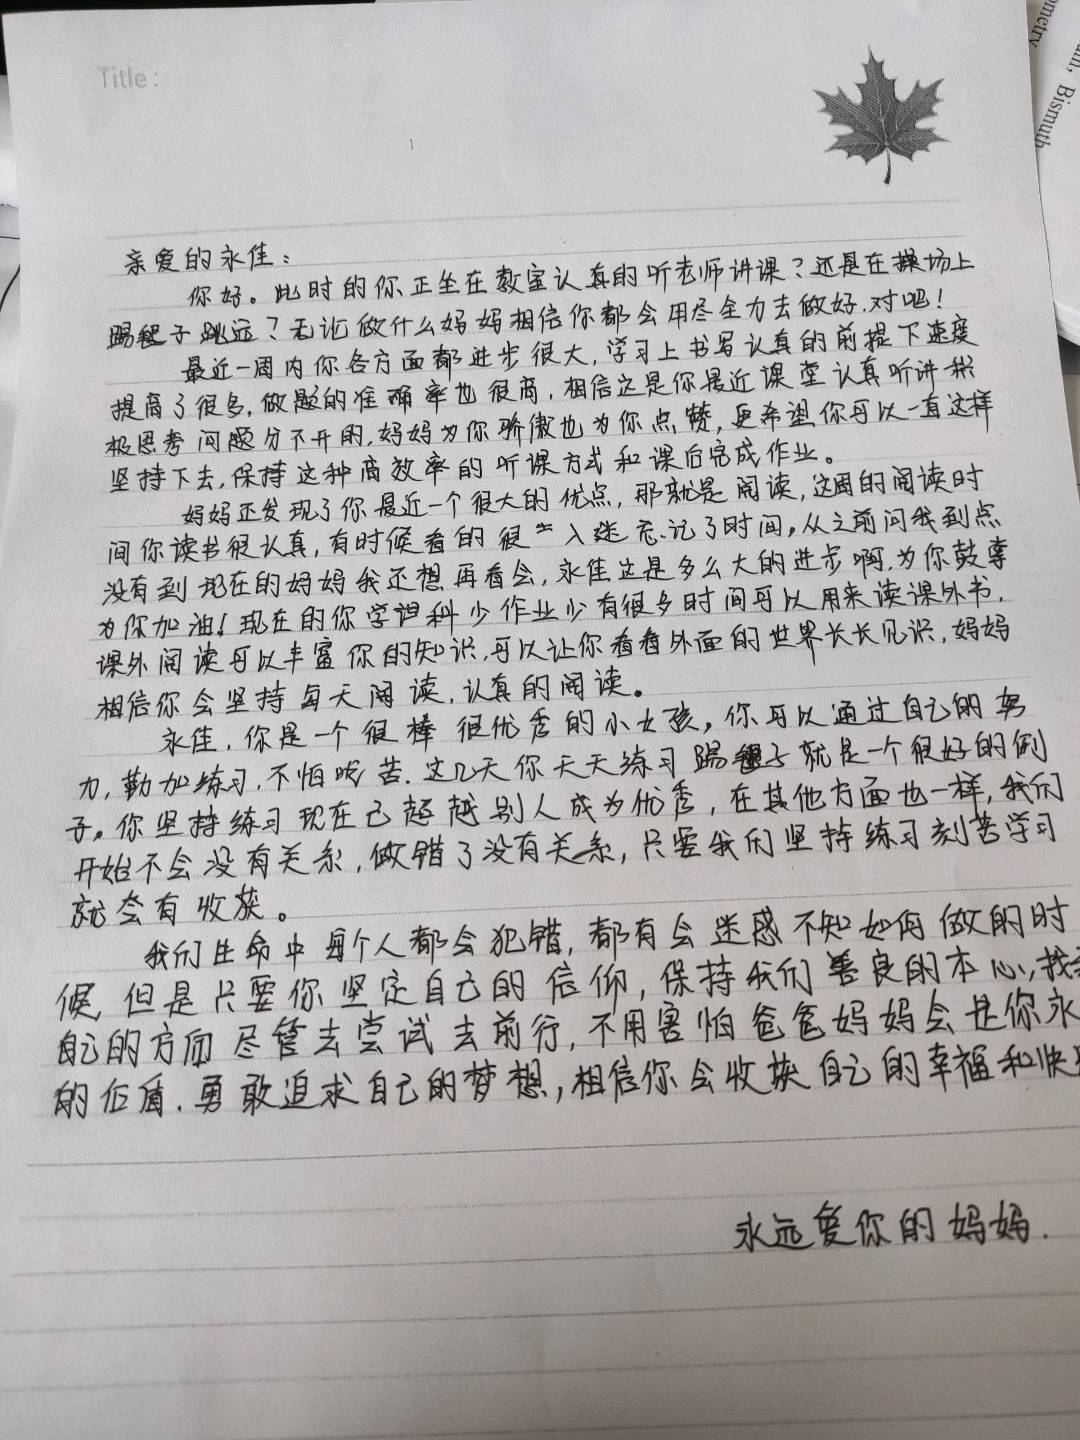 Title:
ometry
um, Bismuth
亲爱的永佳：
你好。此时的你正坐在教室认真的听老师讲课？还是在操场上
踢毽子跳远？无论做什么妈妈相信你都会用尽全力去做好.对吧！
最近一周内你各方面都进步很大,学习上书写认真的前提下速度
提高了很多,做题的准确率也很高,相信这是你最近课堂认真听讲积
极思考问题分不开的,妈妈为你骄傲也为你点赞,更希望你可以一直这样
坚持下去,保持这种高效率的听课方式和课后完成作业。
妈妈还发现了你最近一个很大的优点,那就是阅读,这周的阅读时
间你读书很认真,有时候看的很入迷忘记了时间,从之前问我到点
没有到现在的妈妈我还想再看会,永佳这是多么大的进步啊.为你鼓掌
为你加油！现在的你学科少作业少有很多时间可以用来读课外书.
课外阅读可以丰富你的知识,可以让你看看外面的世界长长见识,妈妈
相信你会坚持每天阅读,认真的阅读。
永佳,你是一个很棒很优秀的小女孩,你可以通过自己的努
力,勤加练习,不怕吃苦.这几天你天天练习踢毽子就是一个很好的例
子。你坚持练习现在已超越别人成为优秀,在其他方面也一样,我们
开始不会没有关系,做错了没有关系,只要我们坚持练习刻苦学习
就会有收获。
我们生命中每个人都会犯错,都有会迷惑不知如何做的时
候,但是只要你坚定自己的信仰,保持我们善良的本心,找
自己的方向尽管去尝试去前行,不用害怕爸爸妈妈会是你永
的后盾.勇敢追求自己的梦想,相信你会收获自己的幸福和快
永远爱你的妈妈.